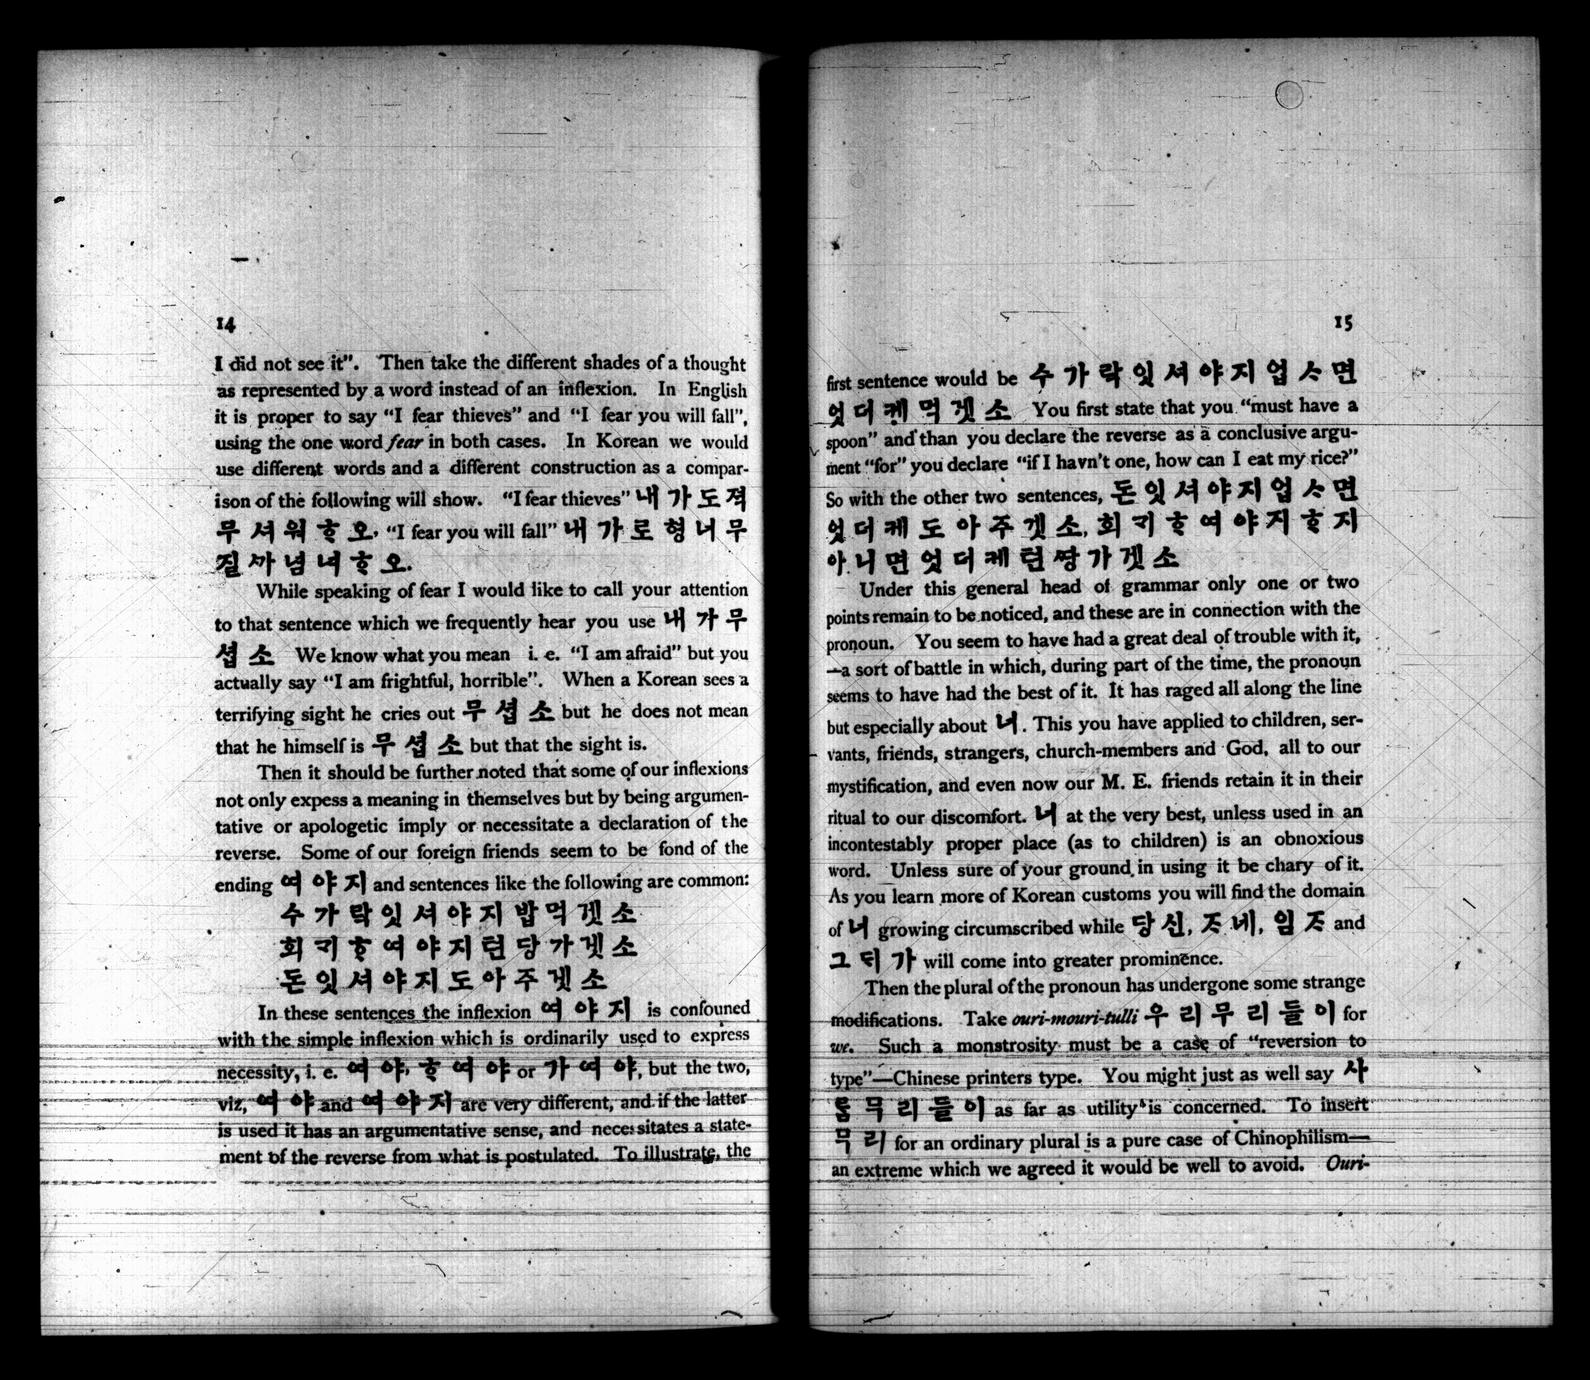 14
I did not see it”. Then take the different shades of a thought
as represented by a word instead of an inflexion. In English
it is proper to say “I fear thieves” and “I fear you will fall”,
using the one word fear in both cases. In Korean we would
use different words and a different construction as a compar-
ison of the following will show. “I fear thieves” 내가도젹
무셔워ᄒᆞ오, “I fear you will fall” 내가로형너무
질까념녀ᄒᆞ오.
While speaking of fear I would like to call your attention
to that sentence which we frequently hear you use 내가무
셥소 We know what you mean i. e. “I am afraid” but you
actually say “I am frightful, horrible”. When a Korean sees a
terrifying sight he cries out 무셥소 but he does not mean
that he himself is 무셥소 but that the sight is.
Then it should be further noted that some of our inflexions
not only expess a meaning in themselves but by being argumen-
tative or apologetic imply or necessitate a declaration of the
reverse. Some of our foreign friends seem to be fond of the
ending 여야지 and sentences like the following are common:
수가락잇셔야지밥먹겟소
회ᄀᆡᄒᆞ여야지텬당가겟소
돈잇셔야지도아주겟소
In these sentences the inflexion 여야지 is confouned
with the simple inflexion which is ordinarily used to express
necessity, i. e. 여야, ᄒᆞ여야 or 가여야, but the two,
viz, 여야 and 여야지 are very different, and if the latter
is used it has an argumentative sense, and necessitates a state-
ment of the reverse from what is postulated. To illustrate, the
15
first sentence would be 수가락잇셔야지업ᄉᆞ면
엇더케먹겟소 You first state that you “must have a
spoon” and than you declare the reverse as a conclusive argu-
ment “for” you declare “if I havn't one, how can I eat my rice?”
So with the other two sentences, 돈잇셔야지업ᄉᆞ면
엇더케도아주겟소, 회ᄀᆡᄒᆞ여야지ᄒᆞ지
아니면엇더케텬땅가겟소
Under this general head of grammar only one or two
points remain to be noticed, and these are in connection with the
pronoun. You seem to have had a great deal of trouble with it,
—a sort of battle in which, during part of the time, the pronoun
seems to have had the best of it. It has raged all along the line
but especially about 너. This you have applied to children, ser-
vants, friends, strangers, church-members and God, all to our
mystification, and even now our M. E. friends retain it in their
ritual to our discomfort. 너 at the very best, unless used in an
incontestably proper place (as to children) is an obnoxious
word. Unless sure of your ground in using it be chary of it.
As you learn more of Korean customs you will find the domain
of 너 growing circumscribed while 당신, ᄌᆞ네, 임ᄌᆞ and
그ᄃᆡ가 will come into greater prominence.
Then the plural of the pronoun has undergone some strange
modifications. Take ouri-mouri-tulli 우리무리들이 for
we. Such a monstrosity must be a case of “reversion to
type”—Chinese printers type. You might just as well say 사
ᄅᆞᆷ무리들이 as far as utility is concerned. To insert
무리 for an ordinary plural is a pure case of Chinophilism—
an extreme which we agreed it would be well to avoid. Ouri-